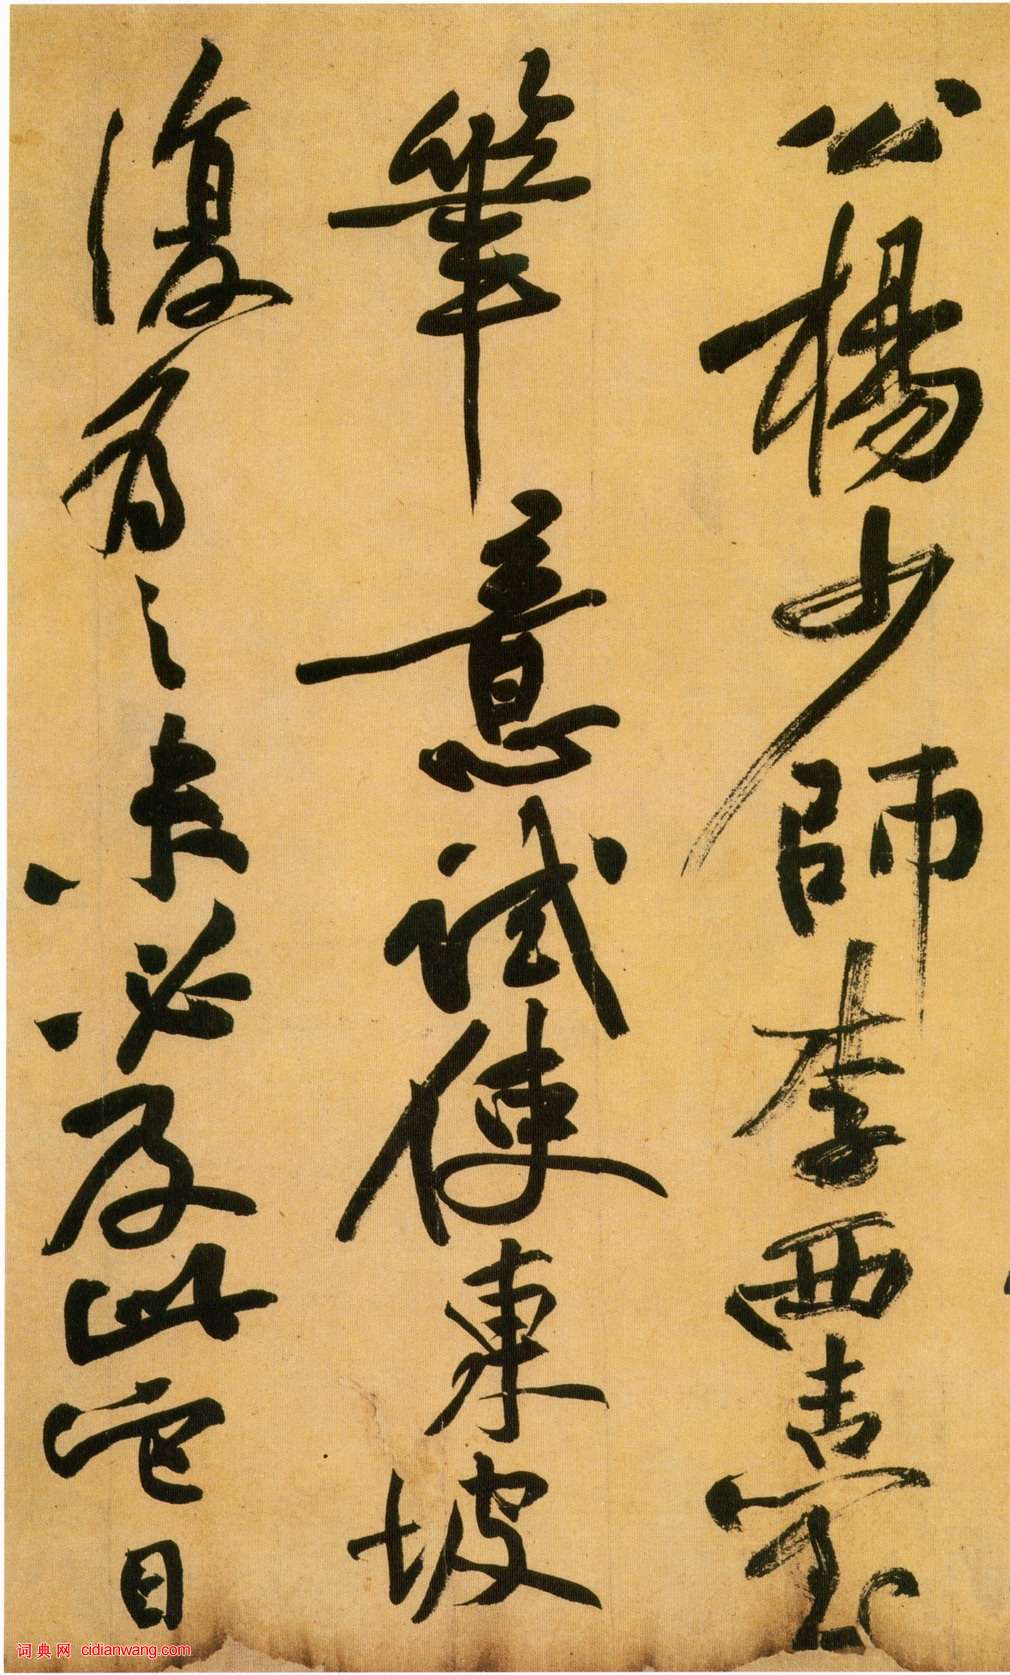 公楊少師李西臺
筆意試使東坡
復為之未必及此它日
词典网 cidianwang.com